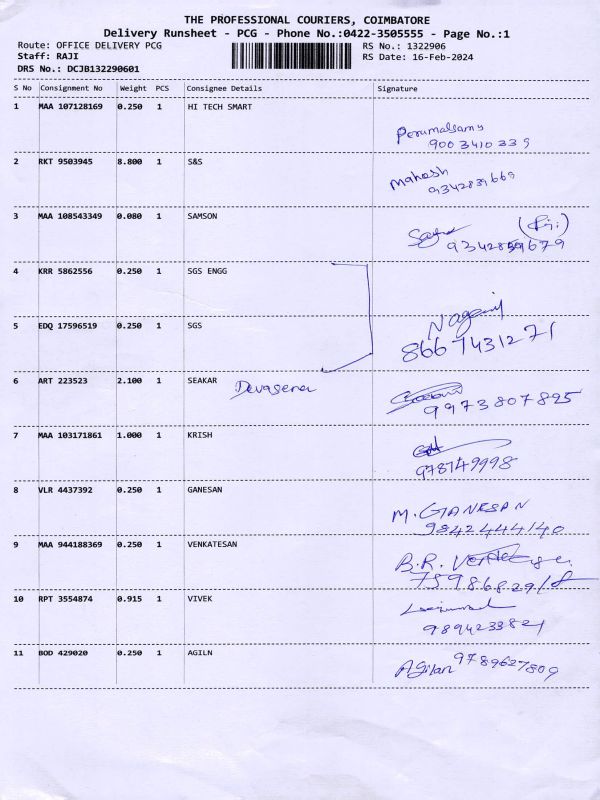 THE PROFESSIONAL COURIERS, COIMBATORE
Delivery Runsheet - PCG - Phone No.:0422-3505555 - Page No.:1
Route: OFFICE DELIVERY PCG RS No.: 1322906
Staff: RAJI RS Date: 16-Feb-2024
DRS No.: DCJB132290601
S No Consignment No Weight PCS Consignee Details Signature
1 MAA 107128169 0.250 1 HI TECH SMART
Perumalsamy
9003410339
2 RKT 9503945 8.800 1 S&S
Mahesh
9342839669
3 MAA 108543349 0.080 1 SAMSON
9342839679
4 KRR 5862556 0.250 1 SGS ENGG
5 EDQ 17596519 0.250 1 SGS
8667431271
6 ART 223523 2.100 1 SEAKAR Devasena
9973807895
7 MAA 103171861 1.000 1 KRISH
978749998
8 VLR 4437392 0.250 1 GANESAN
M. GANESAN
9842444140
9 MAA 944188369 0.250 1 VENKATESAN
B.R.
10 RPT 3554874 0.915 1 VIVEK
9894233821
11 BOD 429020 0.250 1 AGILN
Agilan 9789627809